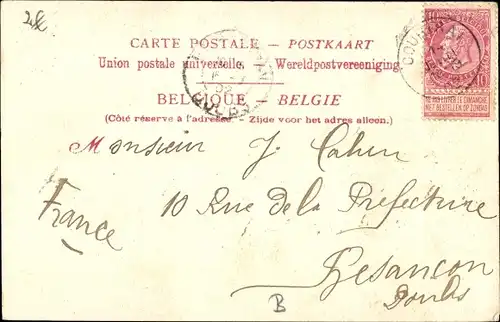 CARTE POSTALE – POSTKAART
Union postale universelle. – Wereldpostvereeniging.
BELGIQUE – BELGIE
(Côté réservé à l'adresse. – Zijde voor het adres alleen.)
Monsieur J. Cahen
10 Rue de la Préfecture
France
Besançon
Doubs
B
10
NE PAS LIVRER LE DIMANCHE
NIET BESTELLEN OP ZONDAG